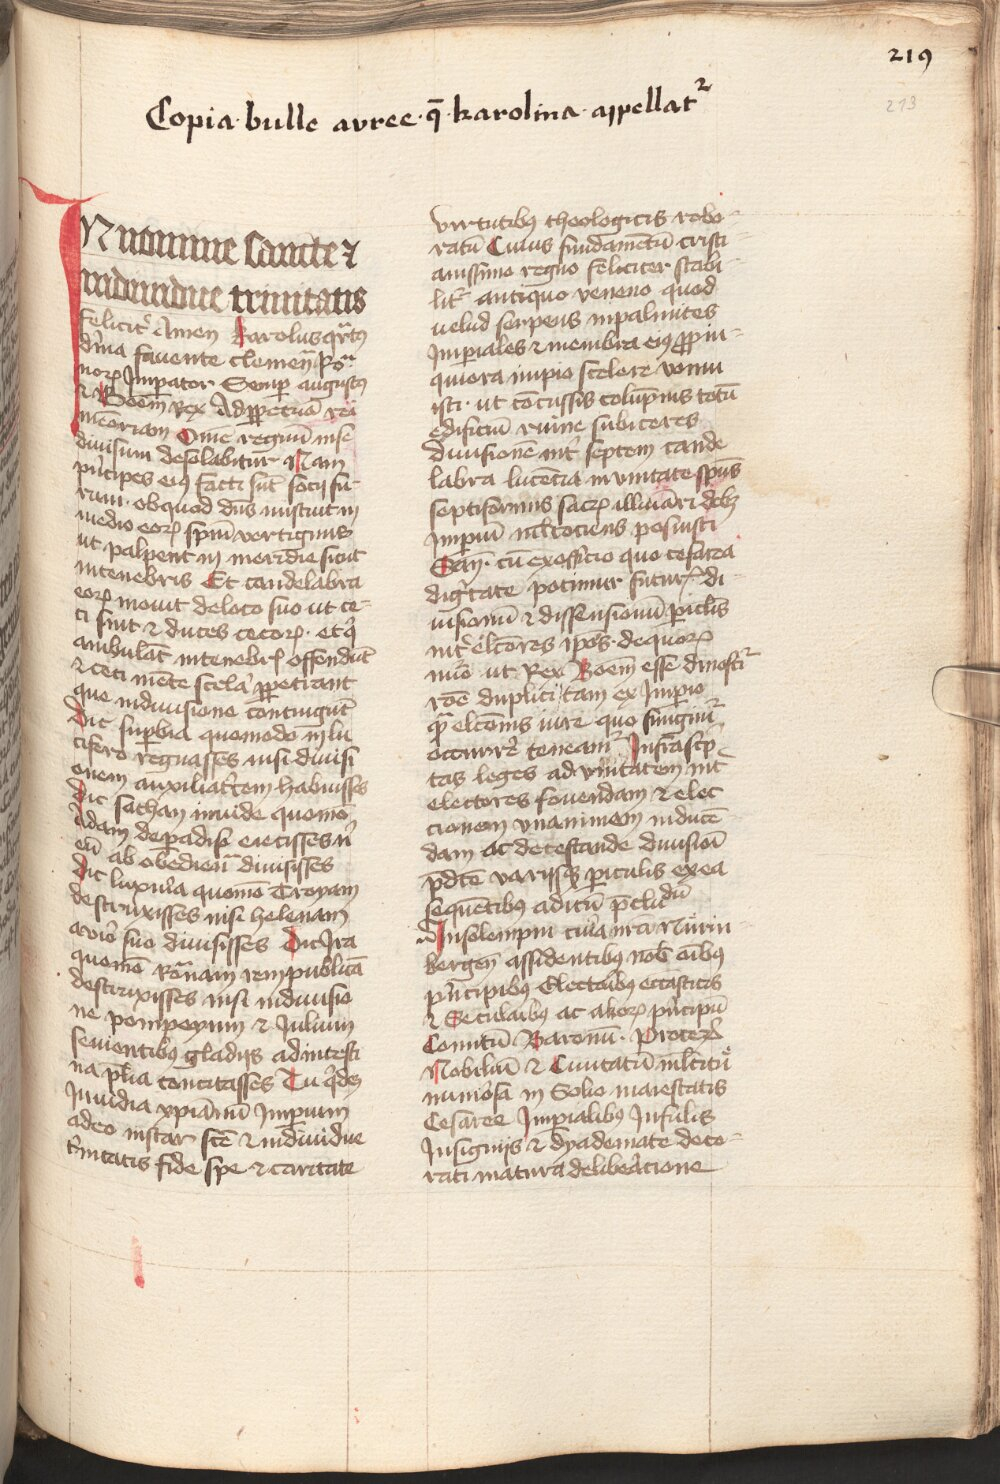 219
213
Copia bulle auree q̄ karolina appellat᷑
IN nomine sancte ⁊
indiuidue trinitatis
feliciť Amen Karolus qᵃrtus
dīna fauente clemen̄ Ro
norꝝ Impator Semp augustus
⁊ Boem̄ Rex Ad ꝑpetuā rei
memoriam Om̄e regnū in se
diuisum desolabitur Nam
pⁱncipes eiꝰ facti sūt socij fu
rum · ob quod dn̄s miscuit in
medio eorꝝ spm̄ vertiginis
ut palpent in meridie sicut
in tenebris Et candelabra
eorꝝ mouit de loco suo ut ce-
ci sint ⁊ duces cecorꝝ · et qⁱ
ambulāt in tenebrꝭ offendūt
⁊ ceci mēte scelᵃ ꝑpetrant
que in diuisione contingūt
Dic supbia quomodo in lu
cifero regnasses nisi diuisi
onem auxiliatᵉcem habuisses
Dic sathan inuide quomōo
Adam de padiso eiecisses nⁱ
eū ab obedien̄ diuisisses
Dic luxuria quomō Troyam
destruxisses nisi helenam
a viro suo diuisisses Dic Ira
quomō Romanam rem publicā
destruxisses nisi in diuisio
ne pompeyum ⁊ Julium
seuientibꝰ gladijs ad intesti
na p̄lia concitasses Tu qⁱdeȝ
Inuidia xp̄ianū Impium
adeo instar scē ⁊ indiuidue
tⁱnitatis fide spe ⁊ caritate
virtutibꝰ theologicis robo-
ratū Cuius fundamentū cristi-
anissimo regno feliciter stabi-
litᷣ antiquo veneno quod
velud serpens in palmites
Imperiales ⁊ membra eiꝰ ꝓpin-
quiora impio scelere vomu
isti · ut concussis colūpnis totū
edificiū ruine subiceres
diuisionē intᷣ septem cande
labra lucencia in vnitate spūs
septiformis sacrꝝ illuīari debȝ
Impiū ml̄tociens posuisti
Sane · cū ex officio quo cesarea
dignitate potimur futurꝭ di-
uisionū ⁊ dissensionū piclis
intᷣ elc̄ores ip̄os · de quorꝝ
nūo ut Rex Boem̄ esse dinosciᷣ
roē duplici tam ex Impio
qᵃ elc̄onis iure quo fungimᷣ
occurrē teneamᷣ Infrascrp̄
tas leges ad vnitatem intᷣ
electores fouendam ⁊ elec
cionem vnanimem inducē-
dam ac detestande diuisioī
p̄dc̄e varijsqȝ piculis ex ea
sequentibus aditū p̄cludū
Insolempni curia nrā Nurm-
bergen̄ assidentibus nob̄ oībus
pⁱncipibus Electoibus ecc̄asticis
⁊ Secularibus ac aliorꝝ pⁱncipū
Comitū Baronū · Procerꝝ
Nobiliū ⁊ Ciuitatū ml̄titū
numosa in Solio maiestatis
Cesaree Impialibus Infulis
Insignijs ⁊ dyademate deco-
rati matura deliberacione